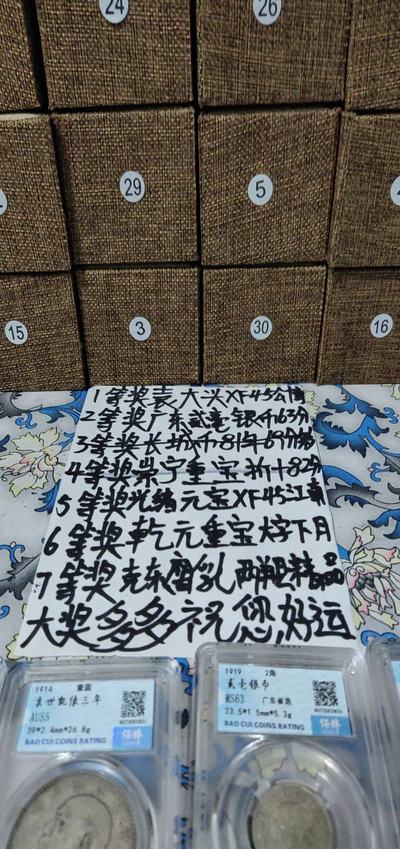 24
26
29
5
15
3
30
16
1等奖袁大头XF45公博
2等奖广东贰毫银币63分
3等奖长
4等奖崇宁重宝折十82分
5等奖光绪元宝XF45江南
6等奖乾元重宝大字下月
7等奖克东腐乳两瓶精品
大奖多多祝您好运
1914 壹圆
袁世凯像三年
AU55
39*2.4mm*26.8g
BAO CUI COINS RATING
保粹
1919 2角
贰毫银币
MS63 广东省造
23.5*1.5mm*5.3g
BAO CUI COINS RATING
保粹